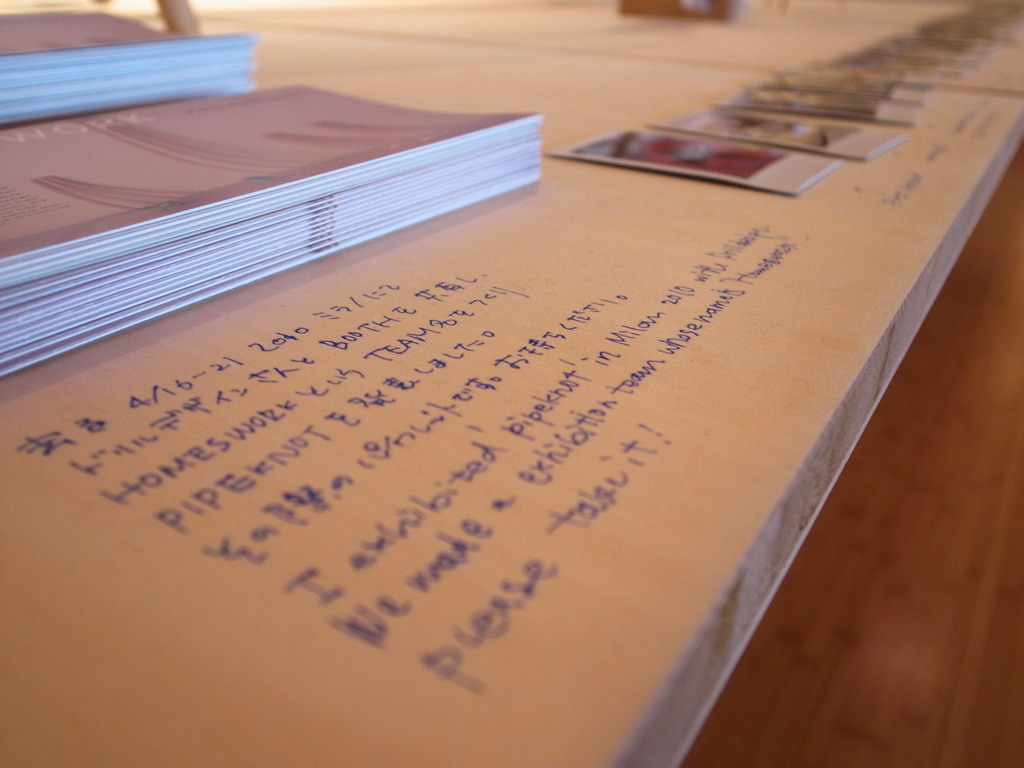 WORK
去る 4/16-21 2010 ミラノにて
ドリルデザインさんと BOOTHを共有し、
HOMESWORKという TEAM名をつくり
PIPEKNOTを発表しました。
その際のパンフレットです。お持ちください。
I exhibited pipeknot in Milan 2010 with Drilldesign.
We made a exhibition team whose named "Homeswork"
please take it!